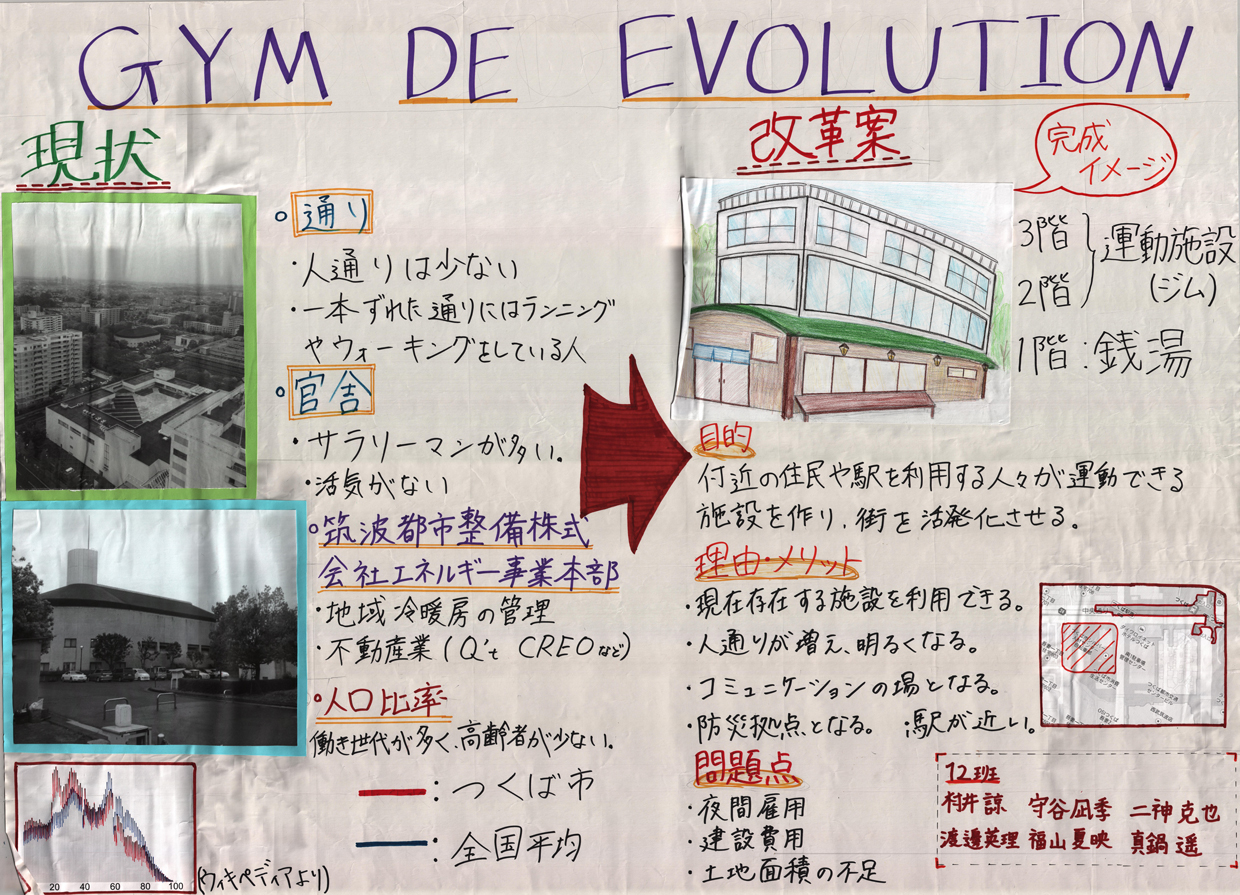 GYM DE EVOLUTION
現状
通り
・人通りは少ない
・一本ずれた通りにはランニング
やウォーキングをしている人
官舎
・サラリーマンが多い。
・活気がない
筑波都市整備株式
会社エネルギー事業本部
・地域冷暖房の管理
・不動産業(Q't CREOなど)
人口比率
働き世代が多く、高齢者が少ない。
:つくば市
:全国平均
20 40 60 80 100
(ウィキペディアより)
改革案
完成
イメージ
3階
2階
運動施設
(ジム)
1階:銭湯
目的
付近の住民や駅を利用する人々が運動できる
施設を作り、街を活発化させる。
理由・メリット
・現在存在する施設を利用できる。
・人通りが増え、明るくなる。
・コミュニケーションの場となる。
・防災拠点となる。 ・駅が近い。
問題点
・夜間雇用
・建設費用
・土地面積の不足
12班
村井諒 守谷凪季 二神克也
渡邊英理 福山夏映 真鍋遥